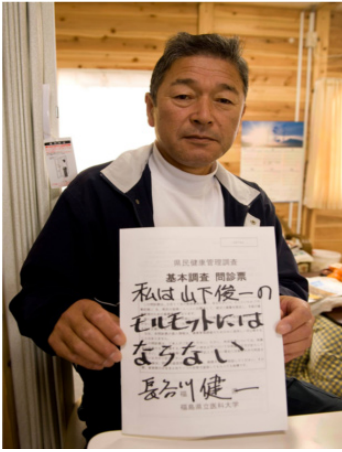 県民健康管理調査
基本調査 問診票
私は山下俊一の
モルモットには
ならない
長谷川健一
福島県立医科大学